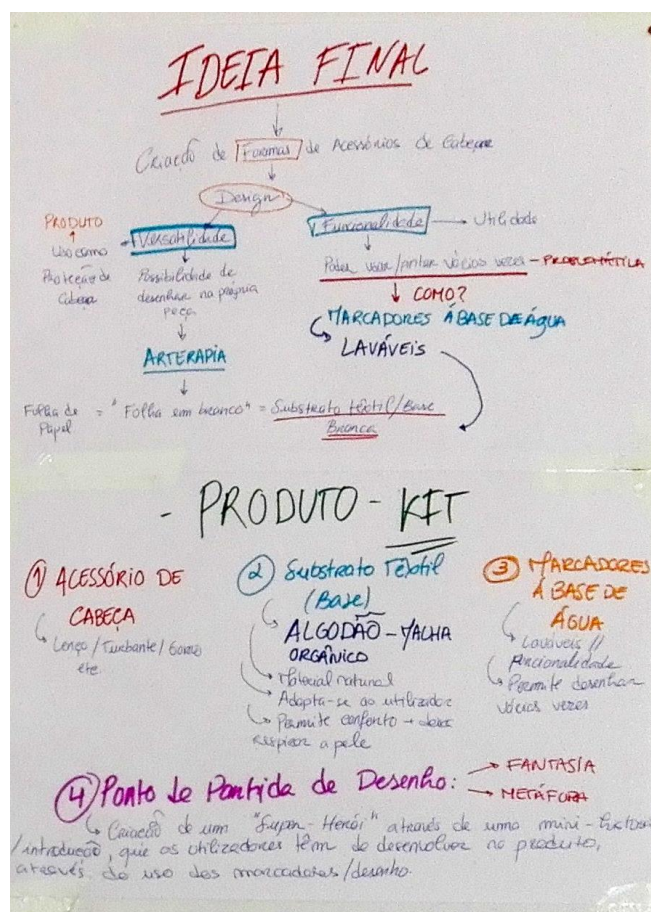 IDEIA FINAL
Criação de Formas de Acessórios de Cabeça
Design
PRODUTO
Uso como
Proteção de
Cabeça
Versatilidade
Possibilidade de
desenhar na própria
peça
ARTERAPIA
Funcionalidade
Utilidade
Poder usar/pintar vários vezes - PROBLEMÁTICA
COMO?
MARCADORES Á BASE DE ÁGUA
LAVÁVEIS
Folha de
Papel
= "Folha em branco" = Substrato têxtil/Base
Branca
- PRODUTO - KIT
1 ACESSÓRIO DE
CABEÇA
Lenço/Turbante/Gorro
etc.
2 Substrato Têxtil
(Base)
ALGODÃO - MALHA
ORGÂNICO
Material natural
Adapta-se ao utilizador
Permite conforto → deixa
respirar a pele
3 MARCADORES
Á BASE DE
ÁGUA
Laváveis //
Funcionalidade
Permite desenhar
vários vezes
4 Ponto de Partida de Desenho:
FANTASIA
METÁFORA
Criação de um "Super-Herói" através de uma mini-história
/introdução, que os utilizadores têm de desenvolver no produto,
através do uso dos marcadores/desenho.